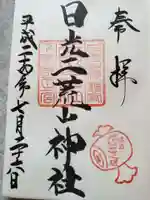 奉拝
日光二荒山神社
平成二十五年七月二十二日